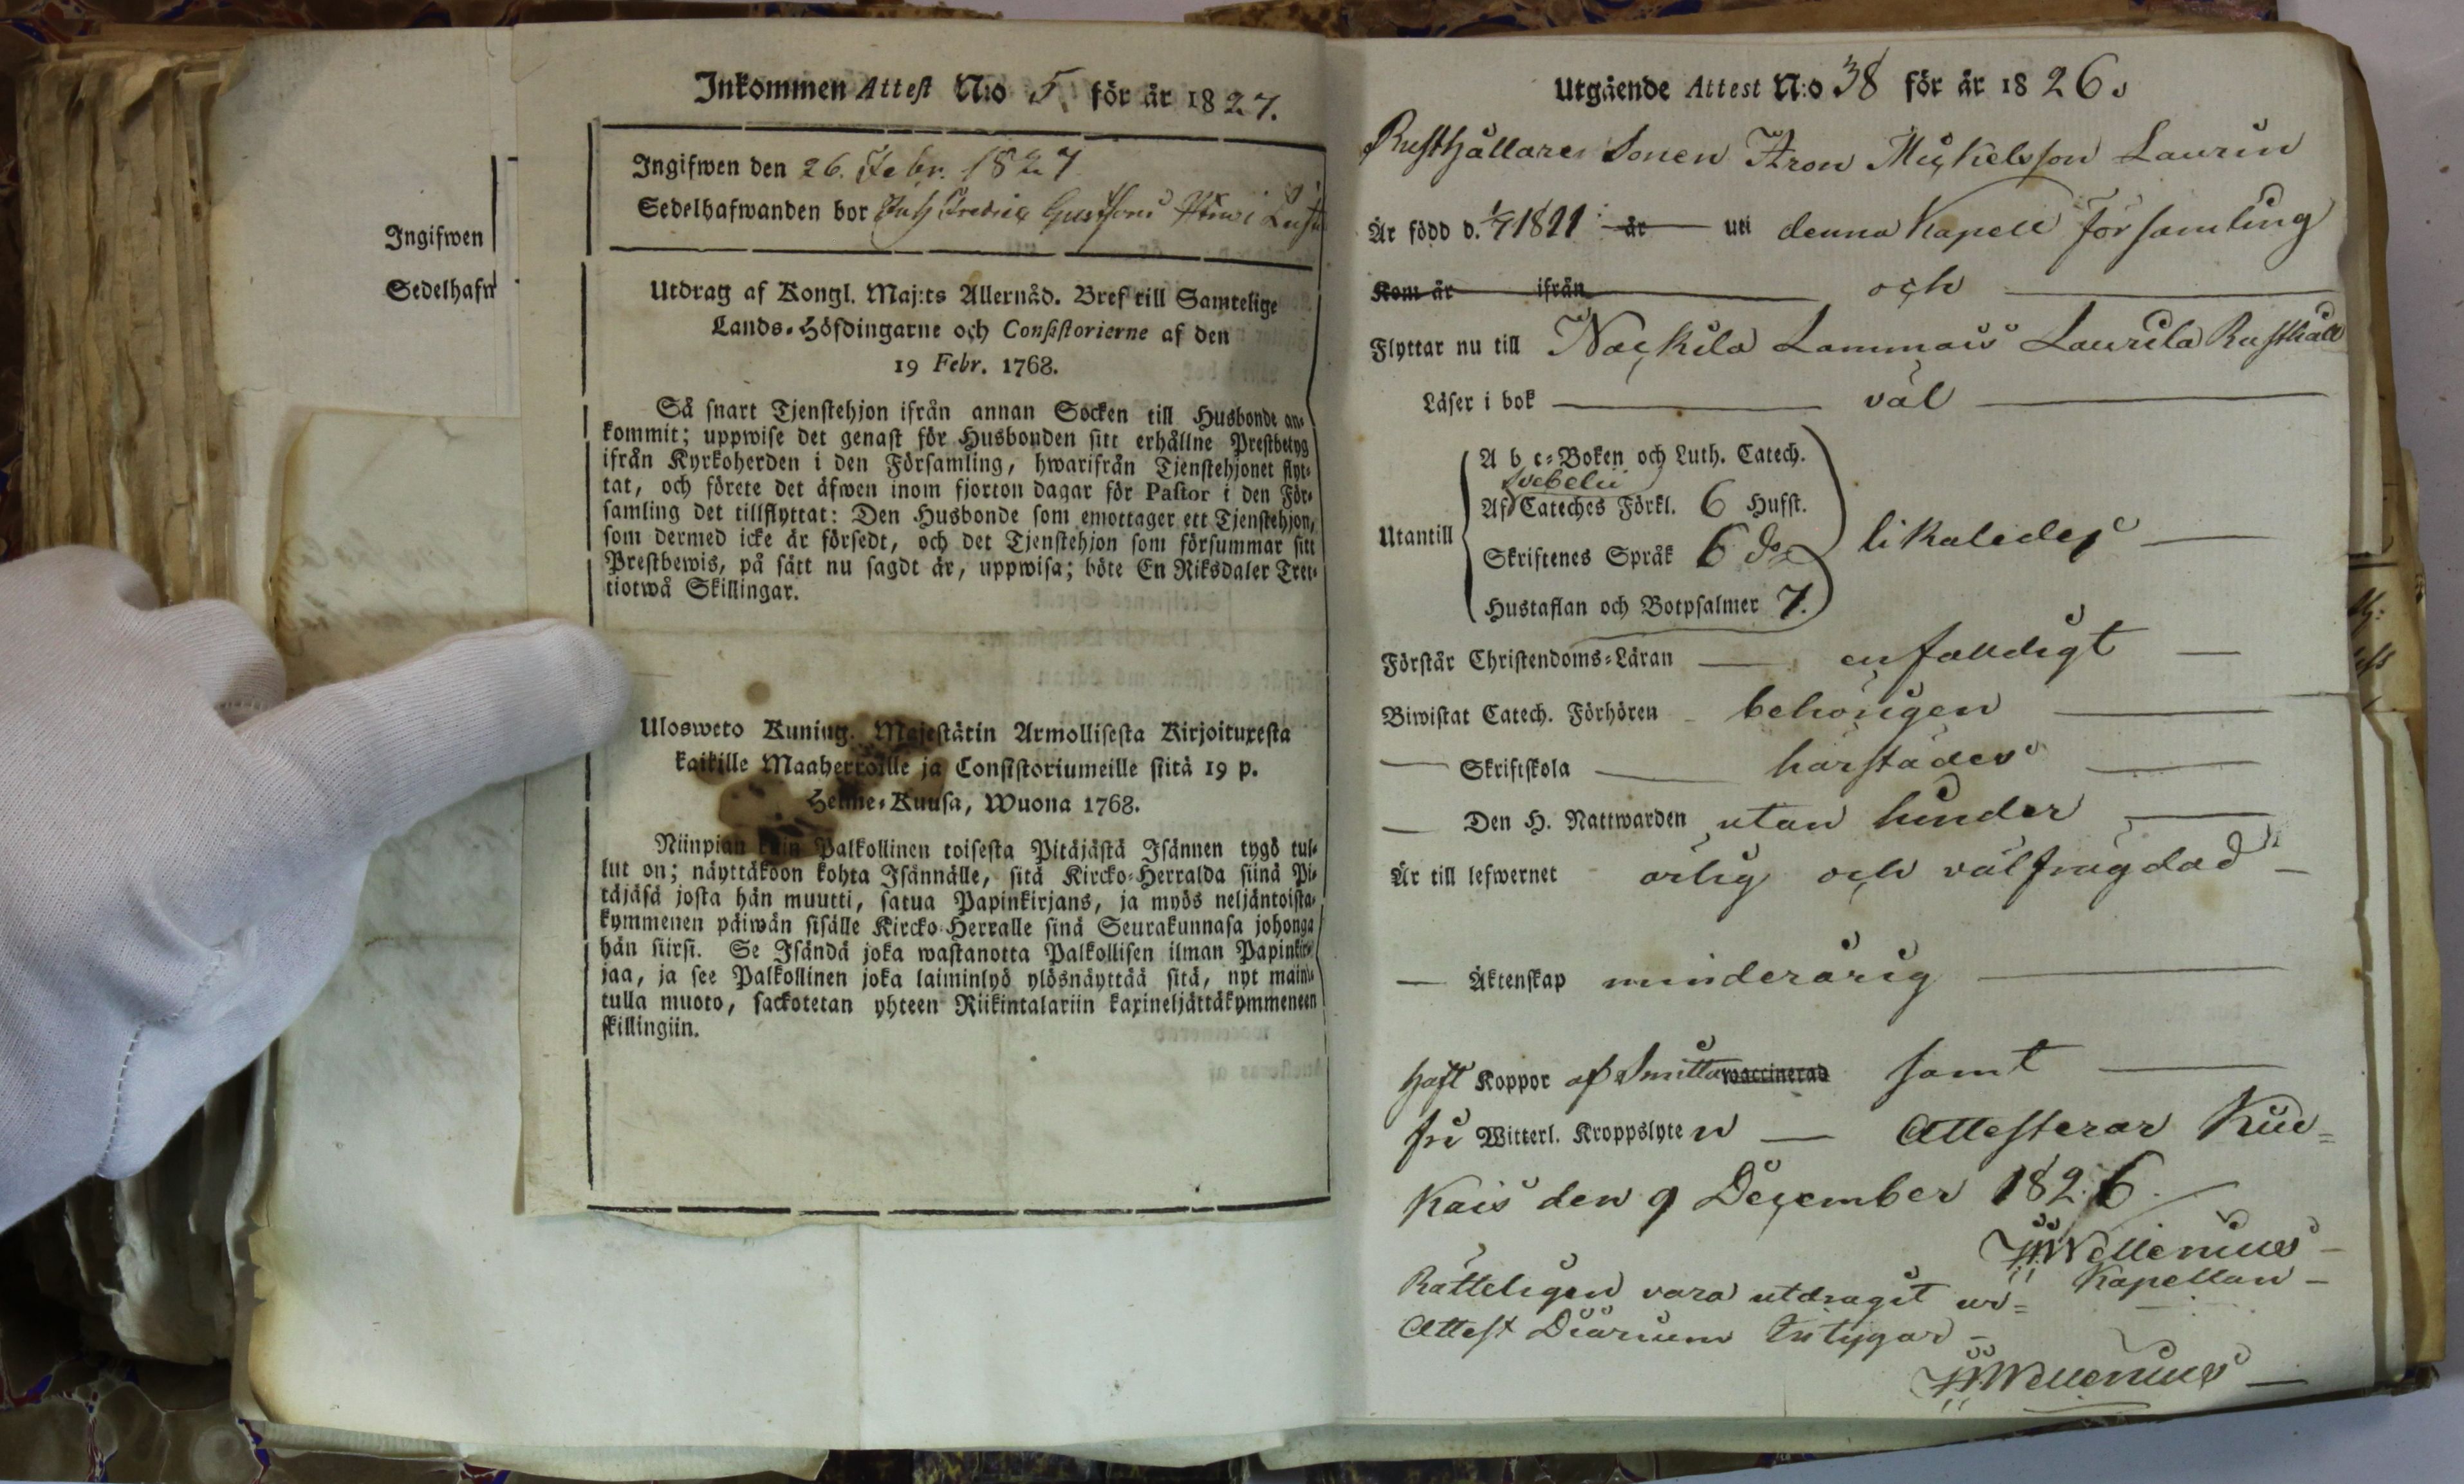 Ingifwen
Sedelhafw
Inkommen Attest N:o 5 för år 1827.
Ingifwen den 26. Febr. 1827
Sedelhafwanden bor
Utdrag af Kongl. Maj:ts Allernåd. Bref till Samtelige
Lands-Höfdingarne och Consistorierne af den
19 Febr. 1768.
Så snart Tjenstehjon ifrån annan Socken till Husbonde an-
kommit; uppwise det genast för Husbonden sitt erhållne Prestbetyg
ifrån Kyrkoherden i den Församling, hwarifrån Tjenstehjonet flyt-
tat, och förete det äfwen inom fjorton dagar för Pastor i den För-
samling det tillflyttat: Den Husbonde som emottager ett Tjenstehjon,
som dermed icke är försedt, och det Tjenstehjon som försummar sitt
Prestbewis, på sätt nu sagdt är, uppwisa; böte En Riksdaler Tret-
tiotwå Skillingar.
Ulosweto Kuning. Majestätin Armollisesta Kirjoituxesta
kaikille Maaherroille ja Consistoriumeille siitä 19 p.
Helme-Kuusa, Wuona 1768.
Niinpian kuin Palkollinen toisesta Pitäjästä Isännen tygö tul-
lut on; näyttäköön kohta Isännälle, sitä Kircko-Herralda siinä Pi-
täjäsä josta hän muutti, satua Papinkirjans, ja myös neljäntoista-
kymmenen päiwän sisälle Kircko-Herralle siinä Seurakunnasa johonga
hän siirsi. Se Isändä joka wastanotta Palkollisen ilman Papinkir-
jaa, ja see Palkollinen joka laiminlyö ylösnäyttää sitä, nyt maini-
tulla muoto, sackotetan yhteen Riikintalariin kaxineljättäkymmeneen
skillingiin.
Utgående Attest N:o 38 för år 1826.
Rusthållare Sonen Aron Mickelsson Laurin
Är född d. 1/7 1811 år uti denna Kapell församling
Kom år ifrån och
Flyttar nu till Nackila Lammais Laurila Rusthåll
Läser i bok väl
A b c-Boken och Luth. Catech.
Svebelii
Af Cateches Förkl. 6 Hufst.
Utantill likaledes
Skriftenes Språk 6 do
Hustaflan och Botpsalmer 7.
Förstår Christendoms-Läran enfalldigt
Biwistat Catech. Förhören behörigen
Skriftskola härstädes
Den H. Nattwarden utan hinder
Är till lefwernet ärlig och välfrägdad
Äktenskap minderårig
haft Koppor af Smitta waccinerad samt
fri Witterl. Kroppslyten Attesterar Kiu-
kais den 9 December 1826.
Wellenius
Kapellan
Rätteligen vara utdragit ur
Attest Diarium Intygar
Wellenius